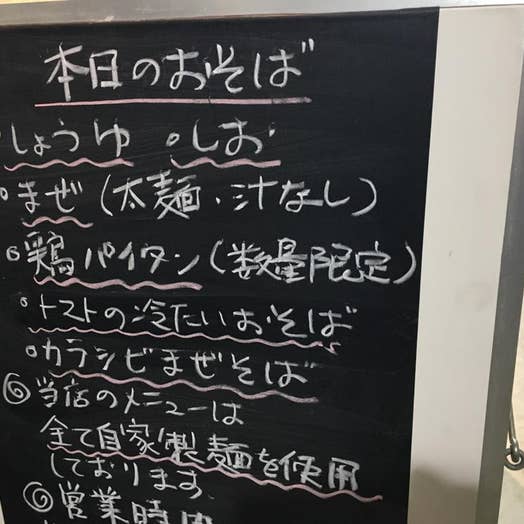 本日のおそば
。しょうゆ 。しお
。まぜ(太麺・汁なし)
。鶏パイタン(数量限定)
。トマトの冷たいおそば
。カラシビまぜそば
◎当店のメニューは
全て自家製麺を使用
しております。
◎営業時間